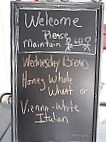 Welcome
Please
Maintain 6ft
Wednesday Bread
Honey Whole
Wheat or
Vienna-White
Italian